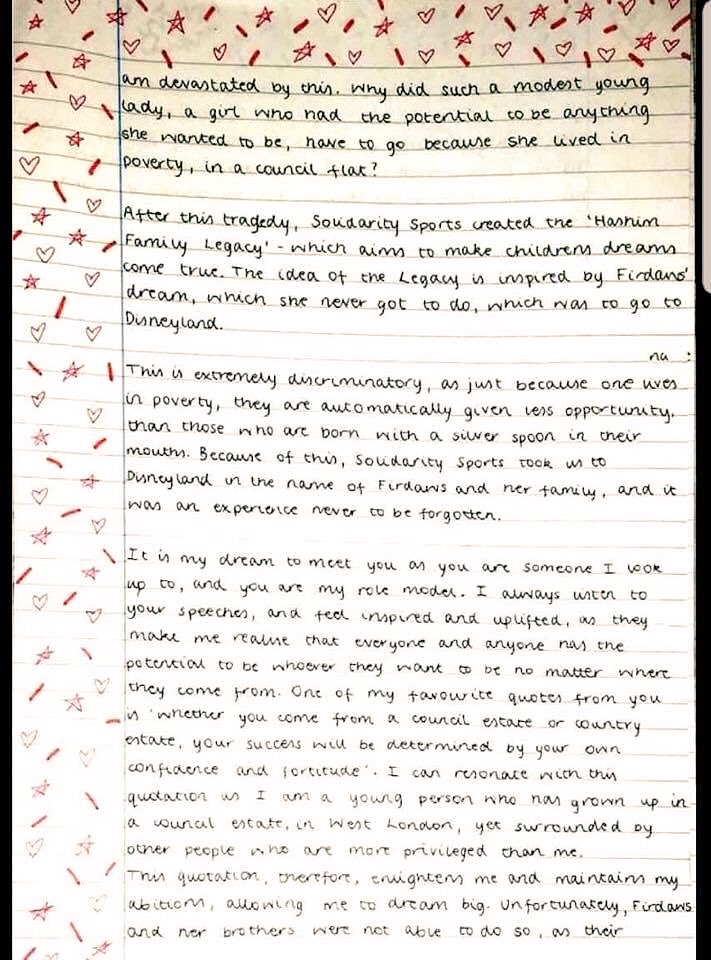 am devastated by this. Why did such a modest young
lady, a girl who had the potential to be anything
she wanted to be, have to go because she lived in
poverty, in a council flat?
After this tragedy, Solidarity Sports created the 'Hashim
Family Legacy' - which aims to make childrens dreams
come true. The idea of the Legacy is inspired by Firdaws'
dream, which she never got to do, which was to go to
Disneyland.
na :
This is extremely discriminatory, as just because one lives
in poverty, they are automatically given less opportunity,
than those who are born with a silver spoon in their
mouths. Because of this, Solidarity Sports took us to
Disneyland in the name of Firdaws and her family, and it
was an experience never to be forgotten.
It is my dream to meet you as you are someone I look
up to, and you are my role model. I always listen to
your speeches, and feel inspired and uplifted, as they
make me realise that everyone and anyone has the
potential to be whoever they want to be no matter where
they come from. One of my favourite quotes from you
is 'whether you come from a council estate or country
estate, your success will be determined by your own
confidence and fortitude'. I can resonate with this
quotation as I am a young person who has grown up in
a council estate, in West London, yet surrounded by
other people who are more privileged than me.
This quotation, therefore, enlightens me and maintains my
abitions, allowing me to dream big. Unfortunately, Firdaws
and her brothers were not able to do so, as their